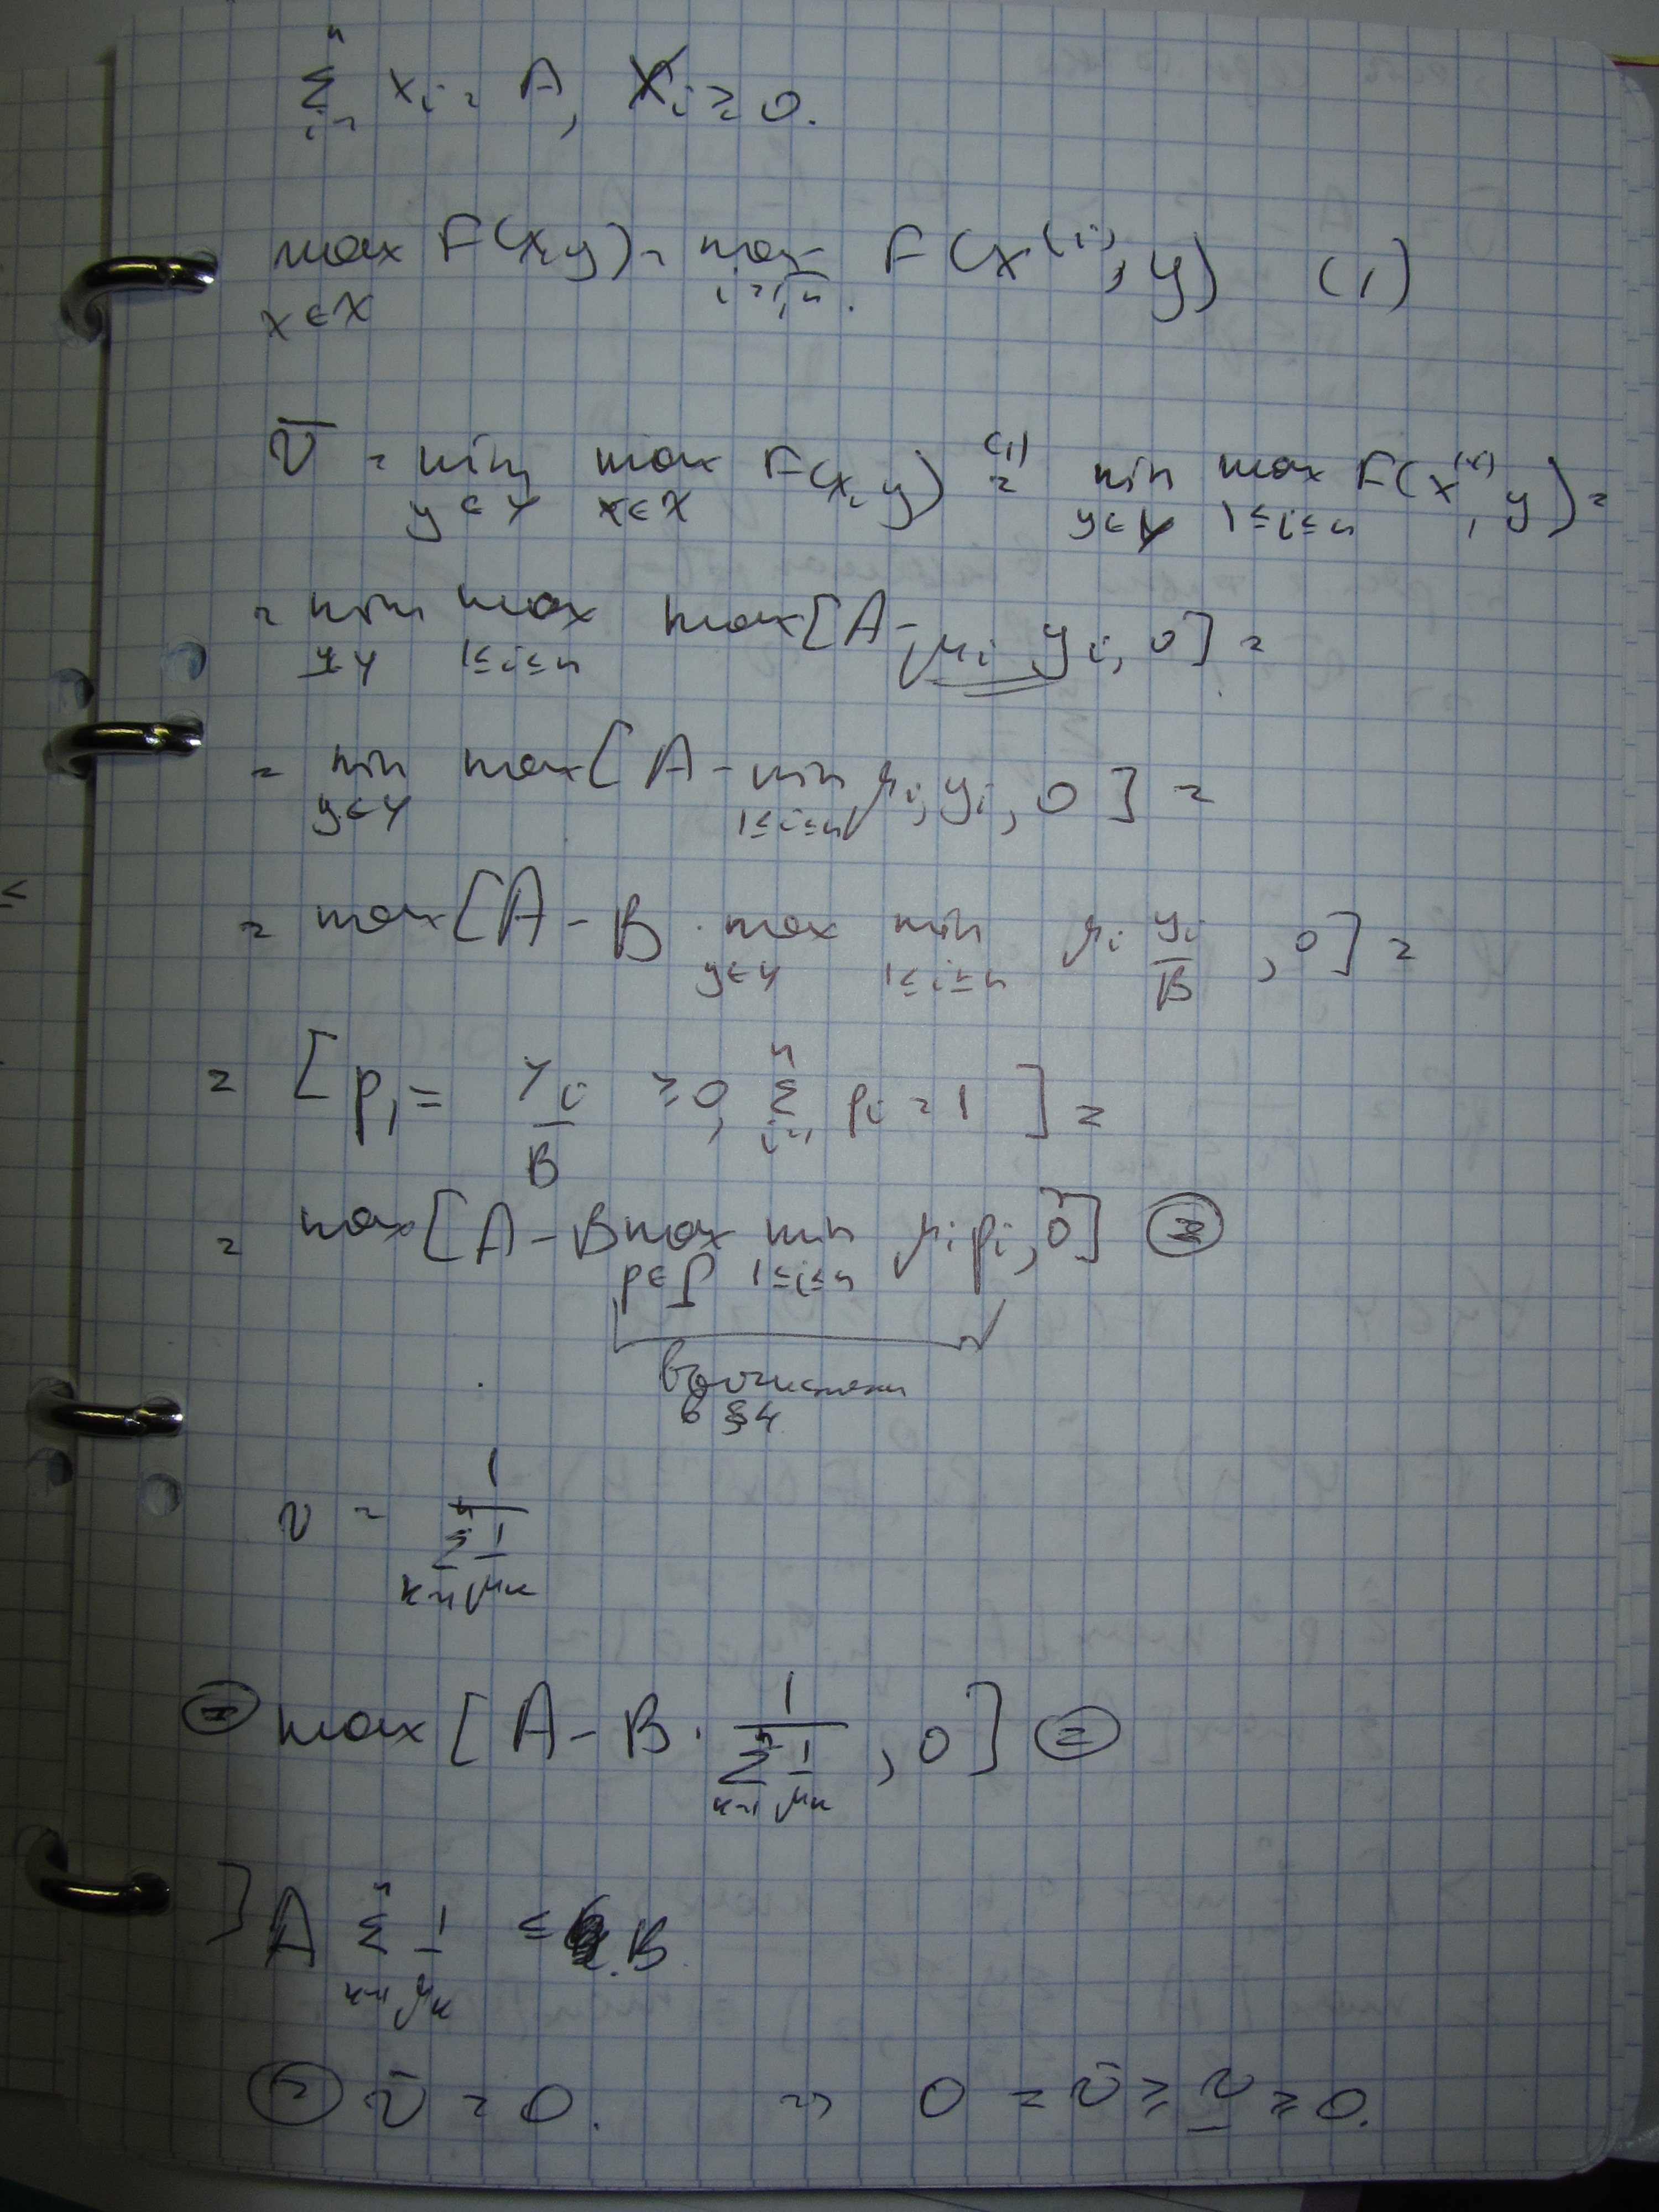 $\sum_{i=1}^{n} x_i = A, \; X_i \geq 0.$
$\max_{x \in X} F(x,y) = \max_{i=\overline{1,n}} F(x^{(i)}, y) \quad (1)$
$\overline{v} = \min_{y \in Y} \max_{x \in X} F(x,y) \overset{(1)}{=} \min_{y \in Y} \max_{1 \leq i \leq n} F(x^{(i)}, y) =$
$= \min_{y \in Y} \max_{1 \leq i \leq n} \max[A - \mu_i y_i, 0] =$
$= \min_{y \in Y} \max[A - \min_{1 \leq i \leq n} \mu_i y_i, 0] =$
$= \max[A - B \cdot \max_{y \in Y} \min_{1 \leq i \leq n} \mu_i \frac{y_i}{B}, 0] =$
$= [p_i = \frac{y_i}{B} \geq 0, \sum_{i=1}^{n} p_i = 1] =$
$= \max[A - B \max_{p \in P} \min_{1 \leq i \leq n} \mu_i p_i, 0] \; ⊜$
в §4
$v = \frac{1}{\sum_{k=1}^{n} \frac{1}{\mu_k}}$
$⊜ \max[A - B \cdot \frac{1}{\sum_{k=1}^{n} \frac{1}{\mu_k}}, 0] \; ⊜$
$] A \sum_{k=1}^{n} \frac{1}{\mu_k} \leq B$
$⊜ \; \overline{v} = 0. \quad \Rightarrow \quad 0 = \overline{v} \geq \underline{v} \geq 0.$